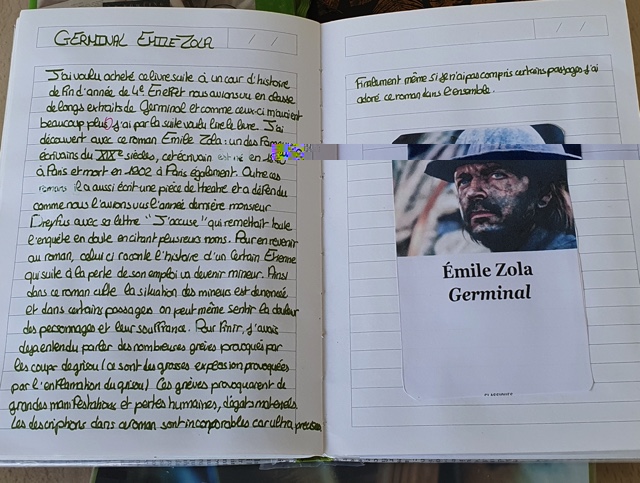 GERMINAL EMILE ZOLA
J'ai voulu acheté ce livre suite à un cour d'histoire
de fin d'année de 4e. En effet nous avions vu en classe
de longs extraits de Germinal et comme ceux-ci m'avaient
beaucoup plus j'ai par la suite voulu lire le livre. J'ai
découvert avec ce roman Emile Zola : un des
écrivains du XIXe siècles, cet écrivain est né en
à Paris et mort en 1902 à Paris également. Outre ces
romans il a aussi écrit une pièce de theatre et a défendu
comme nous l'avions vu l'année dernière monsieur
Dreyfus avec sa lettre "J'accuse" qui remettait toute
l'enquête en doute en citant plusieurs noms. Pour en revenir
au roman, celui ci raconte l'histoire d'un certain Etienne
qui suite à la perte de son emploi va devenir mineur. Ainsi
dans ce roman elle la situation des mineurs est denoncée
et dans certains passages on peut même sentir la douleur
des personnages et leur souffrance. Pour finir, j'avais
deja entendu parler des nombreuses grèves provoqué par
les coups de grisou (ce sont du grosses explosion provoquées
par l'enflamation du grisou). Ces grèves provoquarent de
grandes manifestations et pertes humaines, dégats materiels.
Les descriptions dans ce roman sont incomparables car ultra precises
Finalement même si je n'ai pas compris certains passages j'ai
adoré ce roman dans l'ensemble.
Émile Zola
Germinal